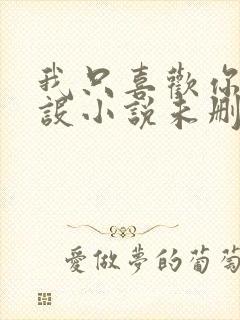 我只喜歡你
設小說未刪
愛做夢的葡萄